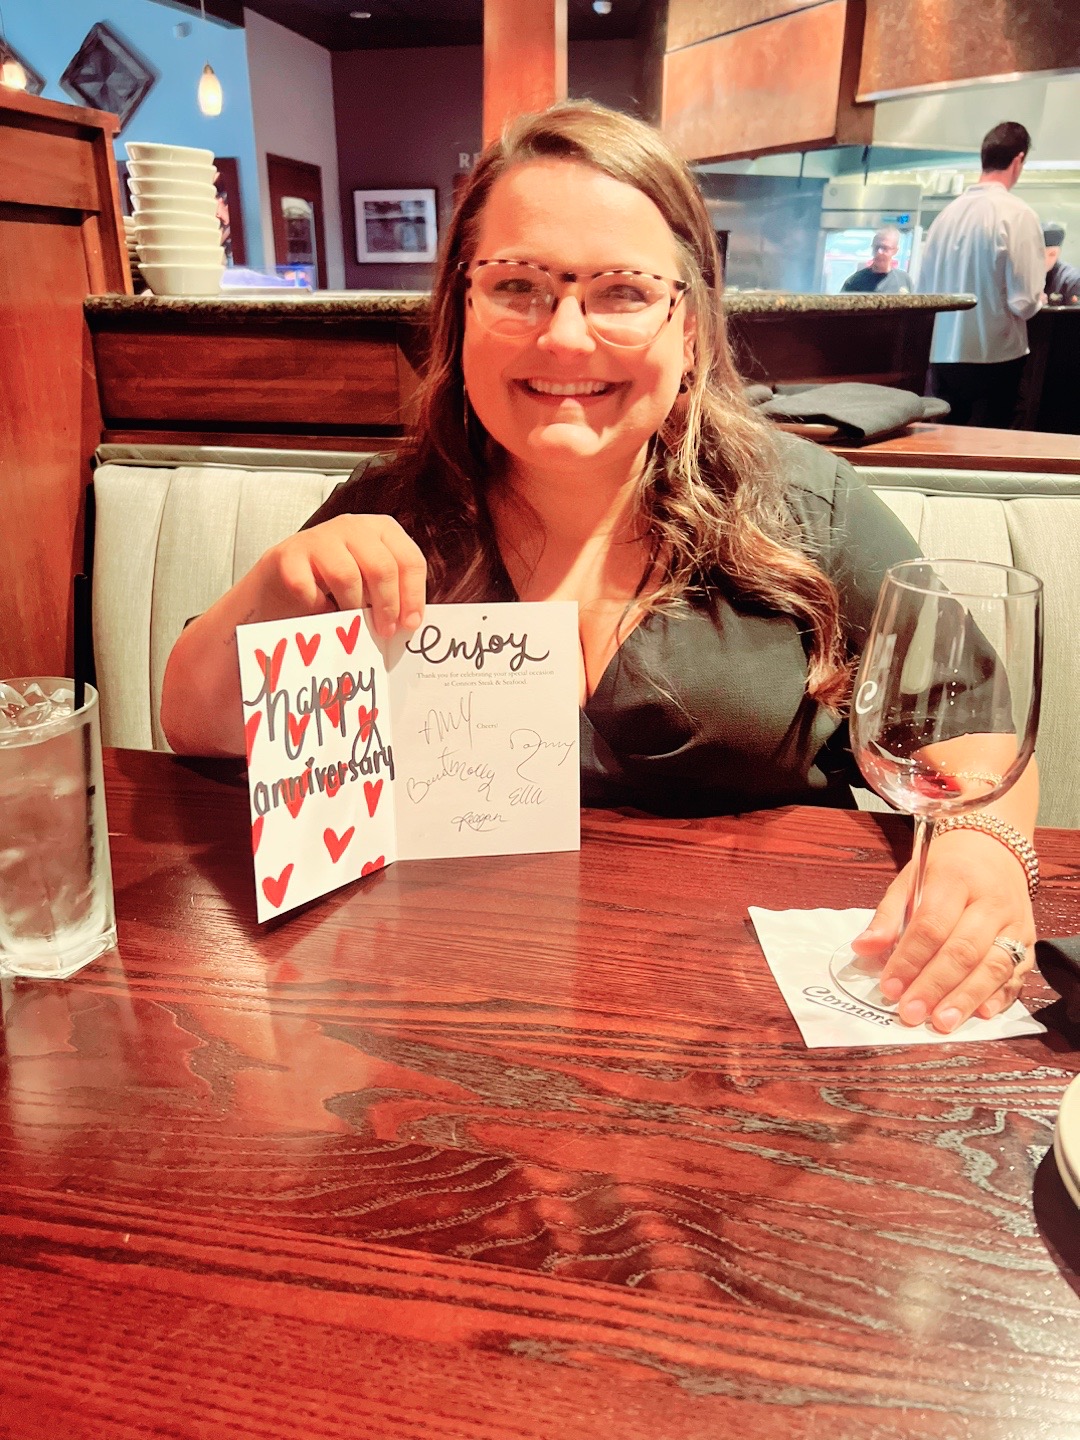 RE
happy
anniversary
enjoy
Thank you for celebrating your special occasion
at Connors Steak & Seafood.
Cheers!
Amy
Danny
Brent Molly
Ella
Reagan
C
Connors